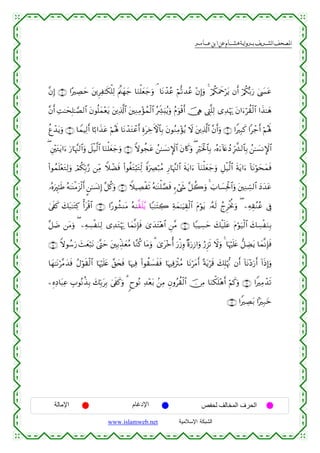 المصحف الشريف برواية هشام عن ابن عامر
عَسَىٰ رَبُّكُمْ أَن يَرْحَمَكُمْ ۚ وَإِنْ عُدتُّمْ عُدْنَا ۘ وَجَعَلْنَا جَهَنَّمَ لِلْكَٰفِرِينَ حَصِيرًا ۝ إِنَّ
هَٰذَا ٱلْقُرْءَانَ يَهْدِى لِلَّتِى هِىَ أَقْوَمُ وَيُبَشِّرُ ٱلْمُؤْمِنِينَ ٱلَّذِينَ يَعْمَلُونَ ٱلصَّٰلِحَٰتِ أَنَّ
لَهُمْ أَجْرًا كَبِيرًا ۝ وَأَنَّ ٱلَّذِينَ لَا يُؤْمِنُونَ بِٱلْءَاخِرَةِ أَعْتَدْنَا لَهُمْ عَذَابًا أَلِيمًا ۝ وَيَدْعُ
ٱلْإِنسَٰنُ بِٱلشَّرِّ دُعَآءَهُۥ بِٱلْخَيْرِ ۖ وَكَانَ ٱلْإِنسَٰنُ عَجُولًا ۝ وَجَعَلْنَا ٱلَّيْلَ وَٱلنَّهَارَ ءَايَتَيْنِ ۖ
فَمَحَوْنَآ ءَايَةَ ٱلَّيْلِ وَجَعَلْنَآ ءَايَةَ ٱلنَّهَارِ مُبْصِرَةً لِّتَبْتَغُوا۟ فَضْلًا مِّن رَّبِّكُمْ وَلِتَعْلَمُوا۟
عَدَدَ ٱلسِّنِينَ وَٱلْحِسَابَ ۚ وَكُلَّ شَىْءٍ فَصَّلْنَٰهُ تَفْصِيلًا ۝ وَكُلَّ إِنسَٰنٍ أَلْزَمْنَٰهُ طَٰٓئِرَهُۥ
فِى عُنُقِهِۦ ۖ وَنُخْرِجُ لَهُۥ يَوْمَ ٱلْقِيَٰمَةِ كِتَٰبًا يُلَقَّىٰهُ مَنشُورًا ۝ ٱقْرَأْ كِتَٰبَكَ كَفَىٰ
بِنَفْسِكَ ٱلْيَوْمَ عَلَيْكَ حَسِيبًا ۝ مَّنِ ٱهْتَدَىٰ فَإِنَّمَا يَهْتَدِى لِنَفْسِهِۦ ۖ وَمَن ضَلَّ
فَإِنَّمَا يَضِلُّ عَلَيْهَا ۚ وَلَا تَزِرُ وَازِرَةٌ وِزْرَ أُخْرَىٰ ۗ وَمَا كُنَّا مُعَذِّبِينَ حَتَّىٰ نَبْعَثَ رَسُولًا ۝
وَإِذَآ أَرَدْنَآ أَن نُّهْلِكَ قَرْيَةً أَمَرْنَا مُتْرَفِيهَا فَفَسَقُوا۟ فِيهَا فَحَقَّ عَلَيْهَا ٱلْقَوْلُ فَدَمَّرْنَٰهَا
تَدْمِيرًا ۝ وَكَمْ أَهْلَكْنَا مِنَ ٱلْقُرُونِ مِنۢ بَعْدِ نُوحٍ ۗ وَكَفَىٰ بِرَبِّكَ بِذُنُوبِ عِبَادِهِۦ
خَبِيرًۢا بَصِيرًا ۝
الحرف المخالف لحفص الإدغام الإمالة
الشبكة الإسلامية www.islamweb.net